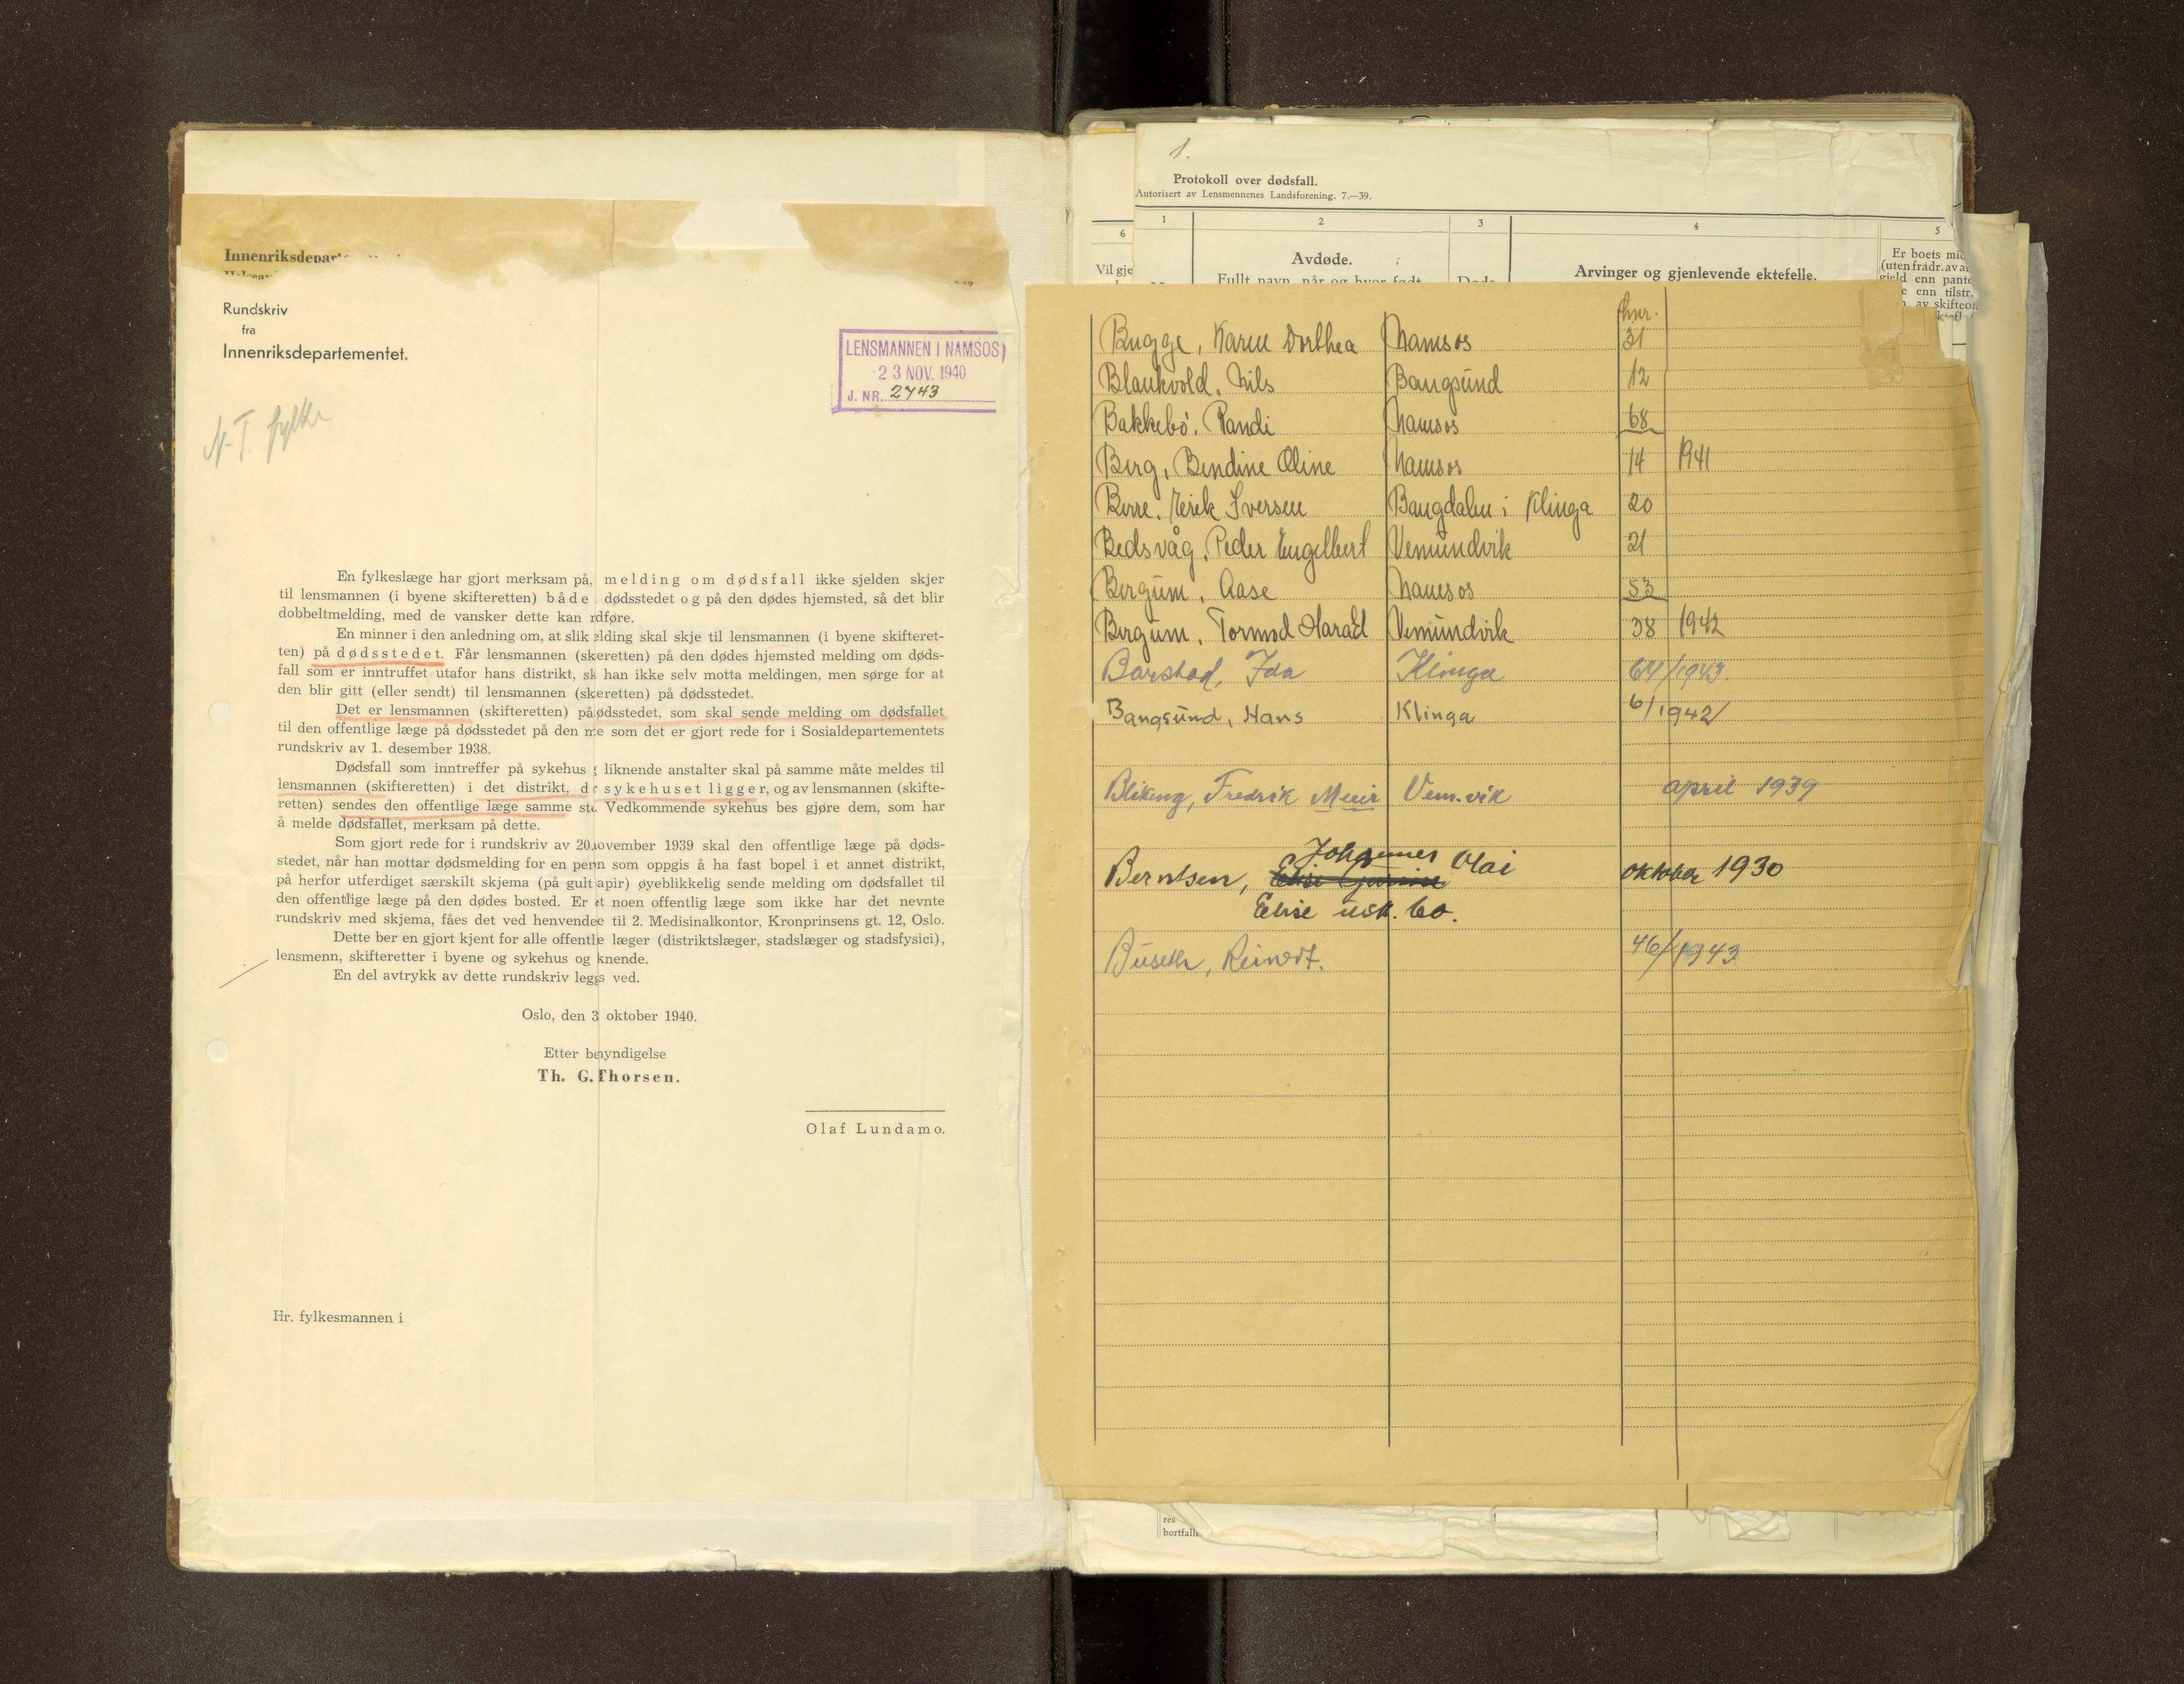 Innenriksdepart
Rundskriv
fra
Innenriksdepartementet.
LENSMANNEN I NAMSOS
23 NOV. 1940
J. NR. 2743
N-T. fylke
En fylkeslæge har gjort merksam på, melding om dødsfall ikke sjelden skjer
til lensmannen (i byene skifteretten) både dødsstedet og på den dødes hjemsted, så det blir
dobbeltmelding, med de vansker dette kan dføre.
En minner i den anledning om, at slik elding skal skje til lensmannen (i byene skifteret-
ten) på dødsstedet. Får lensmannen (skeretten) på den dødes hjemsted melding om døds-
fall som er inntruffet utafor hans distrikt, sk han ikke selv motta meldingen, men sørge for at
den blir gitt (eller sendt) til lensmannen (skeretten) på dødsstedet.
Det er lensmannen (skifteretten) på ødsstedet, som skal sende melding om dødsfallet
til den offentlige læge på dødsstedet på den me som det er gjort rede for i Sosialdepartementets
rundskriv av 1. desember 1938.
Dødsfall som inntreffer på sykehus liknende anstalter skal på samme måte meldes til
lensmannen (skifteretten) i det distrikt, d sykehuset ligger, og av lensmannen (skifte-
retten) sendes den offentlige læge samme ste. Vedkommende sykehus bes gjøre dem, som har
å melde dødsfallet, merksam på dette.
Som gjort rede for i rundskriv av 20. november 1939 skal den offentlige læge på døds-
stedet, når han mottar dødsmelding for en pern som oppgis å ha fast bopel i et annet distrikt,
på herfor utferdiget særskilt skjema (på gult apir) øyeblikkelig sende melding om dødsfallet til
den offentlige læge på den dødes bosted. Er et noen offentlig læge som ikke har det nevnte
rundskriv med skjema, fåes det ved henvendee til 2. Medisinalkontor, Kronprinsens gt. 12, Oslo.
Dette ber en gjort kjent for alle offentle læger (distriktslæger, stadslæger og stadsfysici),
lensmenn, skifteretter i byene og sykehus og knende.
En del avtrykk av dette rundskriv leggs ved.
Oslo, den 3 oktober 1940.
Etter bemyndigelse
Th. G. Thorsen.
Olaf Lundamo.
Hr. fylkesmannen i
1.
Protokoll over dødsfall.
Autorisert av Lensmennenes Landsforening. 7.—39.
6 1 2 3 4 5
Vil gje
Avdøde.
Fullt navn, når og hvor født
Arvinger og gjenlevende ektefelle.
Er boets mi
(uten fradr. av a
gjeld enn pante
e enn tilstr.
av skifteom
Bugge, Karen Dorthea Namsos 31
Blankvold, Nils Bangsund 12
Bakkebö, Randi Namsos 68
Berg, Bendine Oline Namsos 14 1941
Berre, Eirik Iversen Bangdalen i Klinga 20
Bedsvåg, Peder Engelbert Vemundvik 21
Bergum, Aase Namsos 53
Bergum, Tormod Harald Vemundvik 38 1942
Barstad, Ida Klinga 64/1943.
Bangsund, Hans Klinga 6/1942
Bliking, Fredrik Meier Vem.vik april 1939
Berntsen, Johannes Olai oktober 1930
Elise usk. bo.
Buseth, Reinert. 46/1943
res
bortfalle